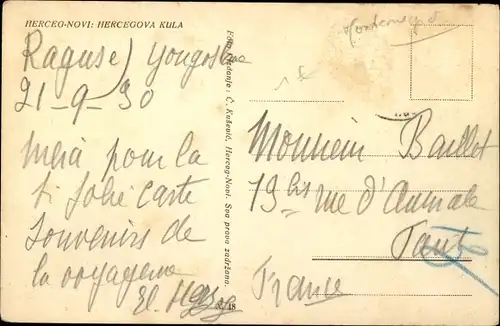 HERCEG-NOVI: HERCEGOVA KULA
Raguse) Yougoslavie
21-9-30
Merci pour la
si jolie carte
Souvenirs de
la voyageuse
El.
Foto i izdanje: Č. Kašević, Herceg-Novi. Sva prava zadržana.
18
Monsieur Baillot
19 bis rue d'Aumale
France